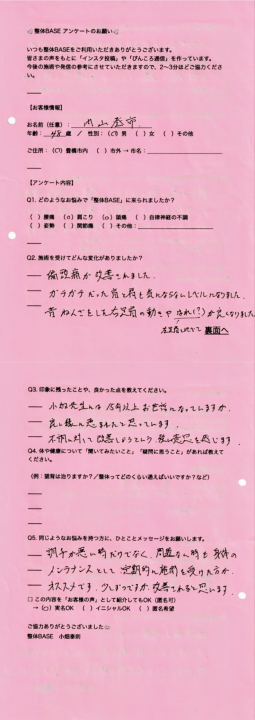 整体BASE アンケートのお願い
いつも整体BASEをご利用いただきありがとうございます。
皆さまの声をもとに「インスタ投稿」や「ぴんころ通信」を作っています。
今後の施術や発信の参考にさせていただきますので、2〜3分ほどご協力ください。
【お客様情報】
お名前（任意）： 内山
年齢： 48 歳 / 性別：(○) 男 ( ) 女 ( ) その他
ご住所：(○) 豊橋市内 ( ) 市外 → 市名：
【アンケート内容】
Q1. どのようなお悩みで「整体BASE」に来られましたか？
( ) 腰痛 (○) 肩こり (○) 頭痛 ( ) 自律神経の不調
( ) 姿勢 ( ) 関節痛 ( ) その他：
Q2. 施術を受けてどんな変化がありましたか？
偏頭痛が改善されました.
ガチガチだった首と肩も気にならないレベルになりました.
昔ねんざをした右足首の動きやはれ(?)が良くなりました
左足首に比べて 裏面へ
Q3. 印象に残ったことや、良かった点を教えてください。
小畑先生には 年以上お世話になっていますが、
良い腕に恵まれたと思っています.
不調に対して改善しようとしり 熱い意志を感じます.
Q4. 体や健康について「聞いてみたいこと」「疑問に思うこと」があれば教えてください。
（例：猫背は治りますか？／整体ってどのくらい通えばいいですか？など）
Q5. 同じようなお悩みを持つ方に、ひとことメッセージをお願いします。
調子が悪い時だけでなく、問題ない時も身体の
メンテナンスとして定期的に施術を受けた方が、
オススメです. 少しずつですが、改善されると思います.
□ この内容を「お客様の声」として紹介してもOK（匿名可）
→ (○) 実名OK ( ) イニシャルOK ( ) 匿名希望
ご協力ありがとうございました
整体BASE 小畑泰則